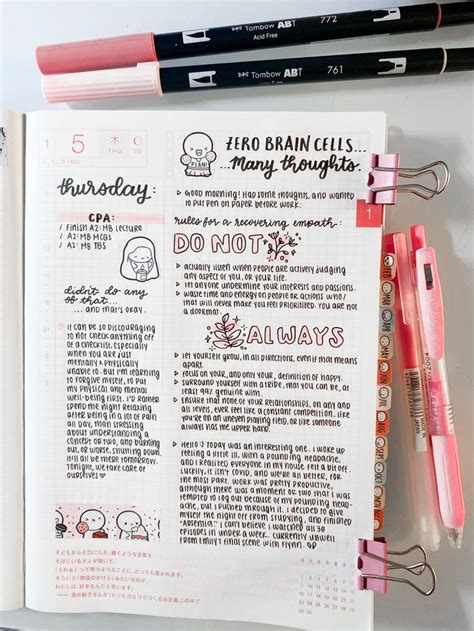 772
Tombow ABT
Acid Free
Tombow ABT
761
1
5
木
THU
thursday:
CPA:
/ Finish A2: MB Lecture
/ A2: MB MCQs
/ A2: MB TBS
didn't do any
of that...
... and that's okay.
it can be so discouraging
to not check anything off
of a checklist, especially
when you are just
mentally & physically
unable to. But I'm learning
to forgive myself, to put
my physical and mental
well-being first. I'd rather
spend me night relaxing
after being in a lot of pain
all day, than stressing
about understanding a
concept or two, and burning
out, or worse, shutting down.
It'll all be there tomorrow.
Tonight, we take care of
ourselves ♡
PLAN!
ZERO BRAIN CELLS...
...Many thoughts.
▷ Good morning! Had some thoughts, and wanted
to put pen on paper before work.
rules for a recovering empath:
DO NOT
▷ actually listen when people are actively judging
any aspect of you, or your life.
▷ let anyone undermine your interests and passions.
▷ waste time and energy on people or actions who/
that will never make you feel prioritized. You are not
a doormat.
ALWAYS
▷ let yourself grow, in all directions, even if that means
apart.
▷ focus on your, and only your, definition of happy.
▷ surround yourself with a tribe, that you can be, at
least 99%, genuine with.
▷ ensure that none of your relationships, on any and
all levels, ever feel like a constant competition, like
you're on an uneven playing field, or like someone
always has the upper hand.
▷ Hello :) Today was an interesting one. I woke up
feeling a little ill, with a pounding headache,
and I realized everyone in my house felt a bit off.
Luckily, it isn't covid, and we're all better, for
the most part. Work was pretty productive,
although there was a moment or two that I was
tempted to log out because of my pounding head-
ache, but I pushed through it. I decided to give
myself the night off from studying, and finished
"Absentia." I can't believe I watched all 30
episodes in under a week. Currently unwell
from Emily's final scene with Flynn.
1
JUN
AUG
SEPT
OCT
NOV
子どもがふと口にした、輝くような言葉を
そばにいる大人が聞いて、